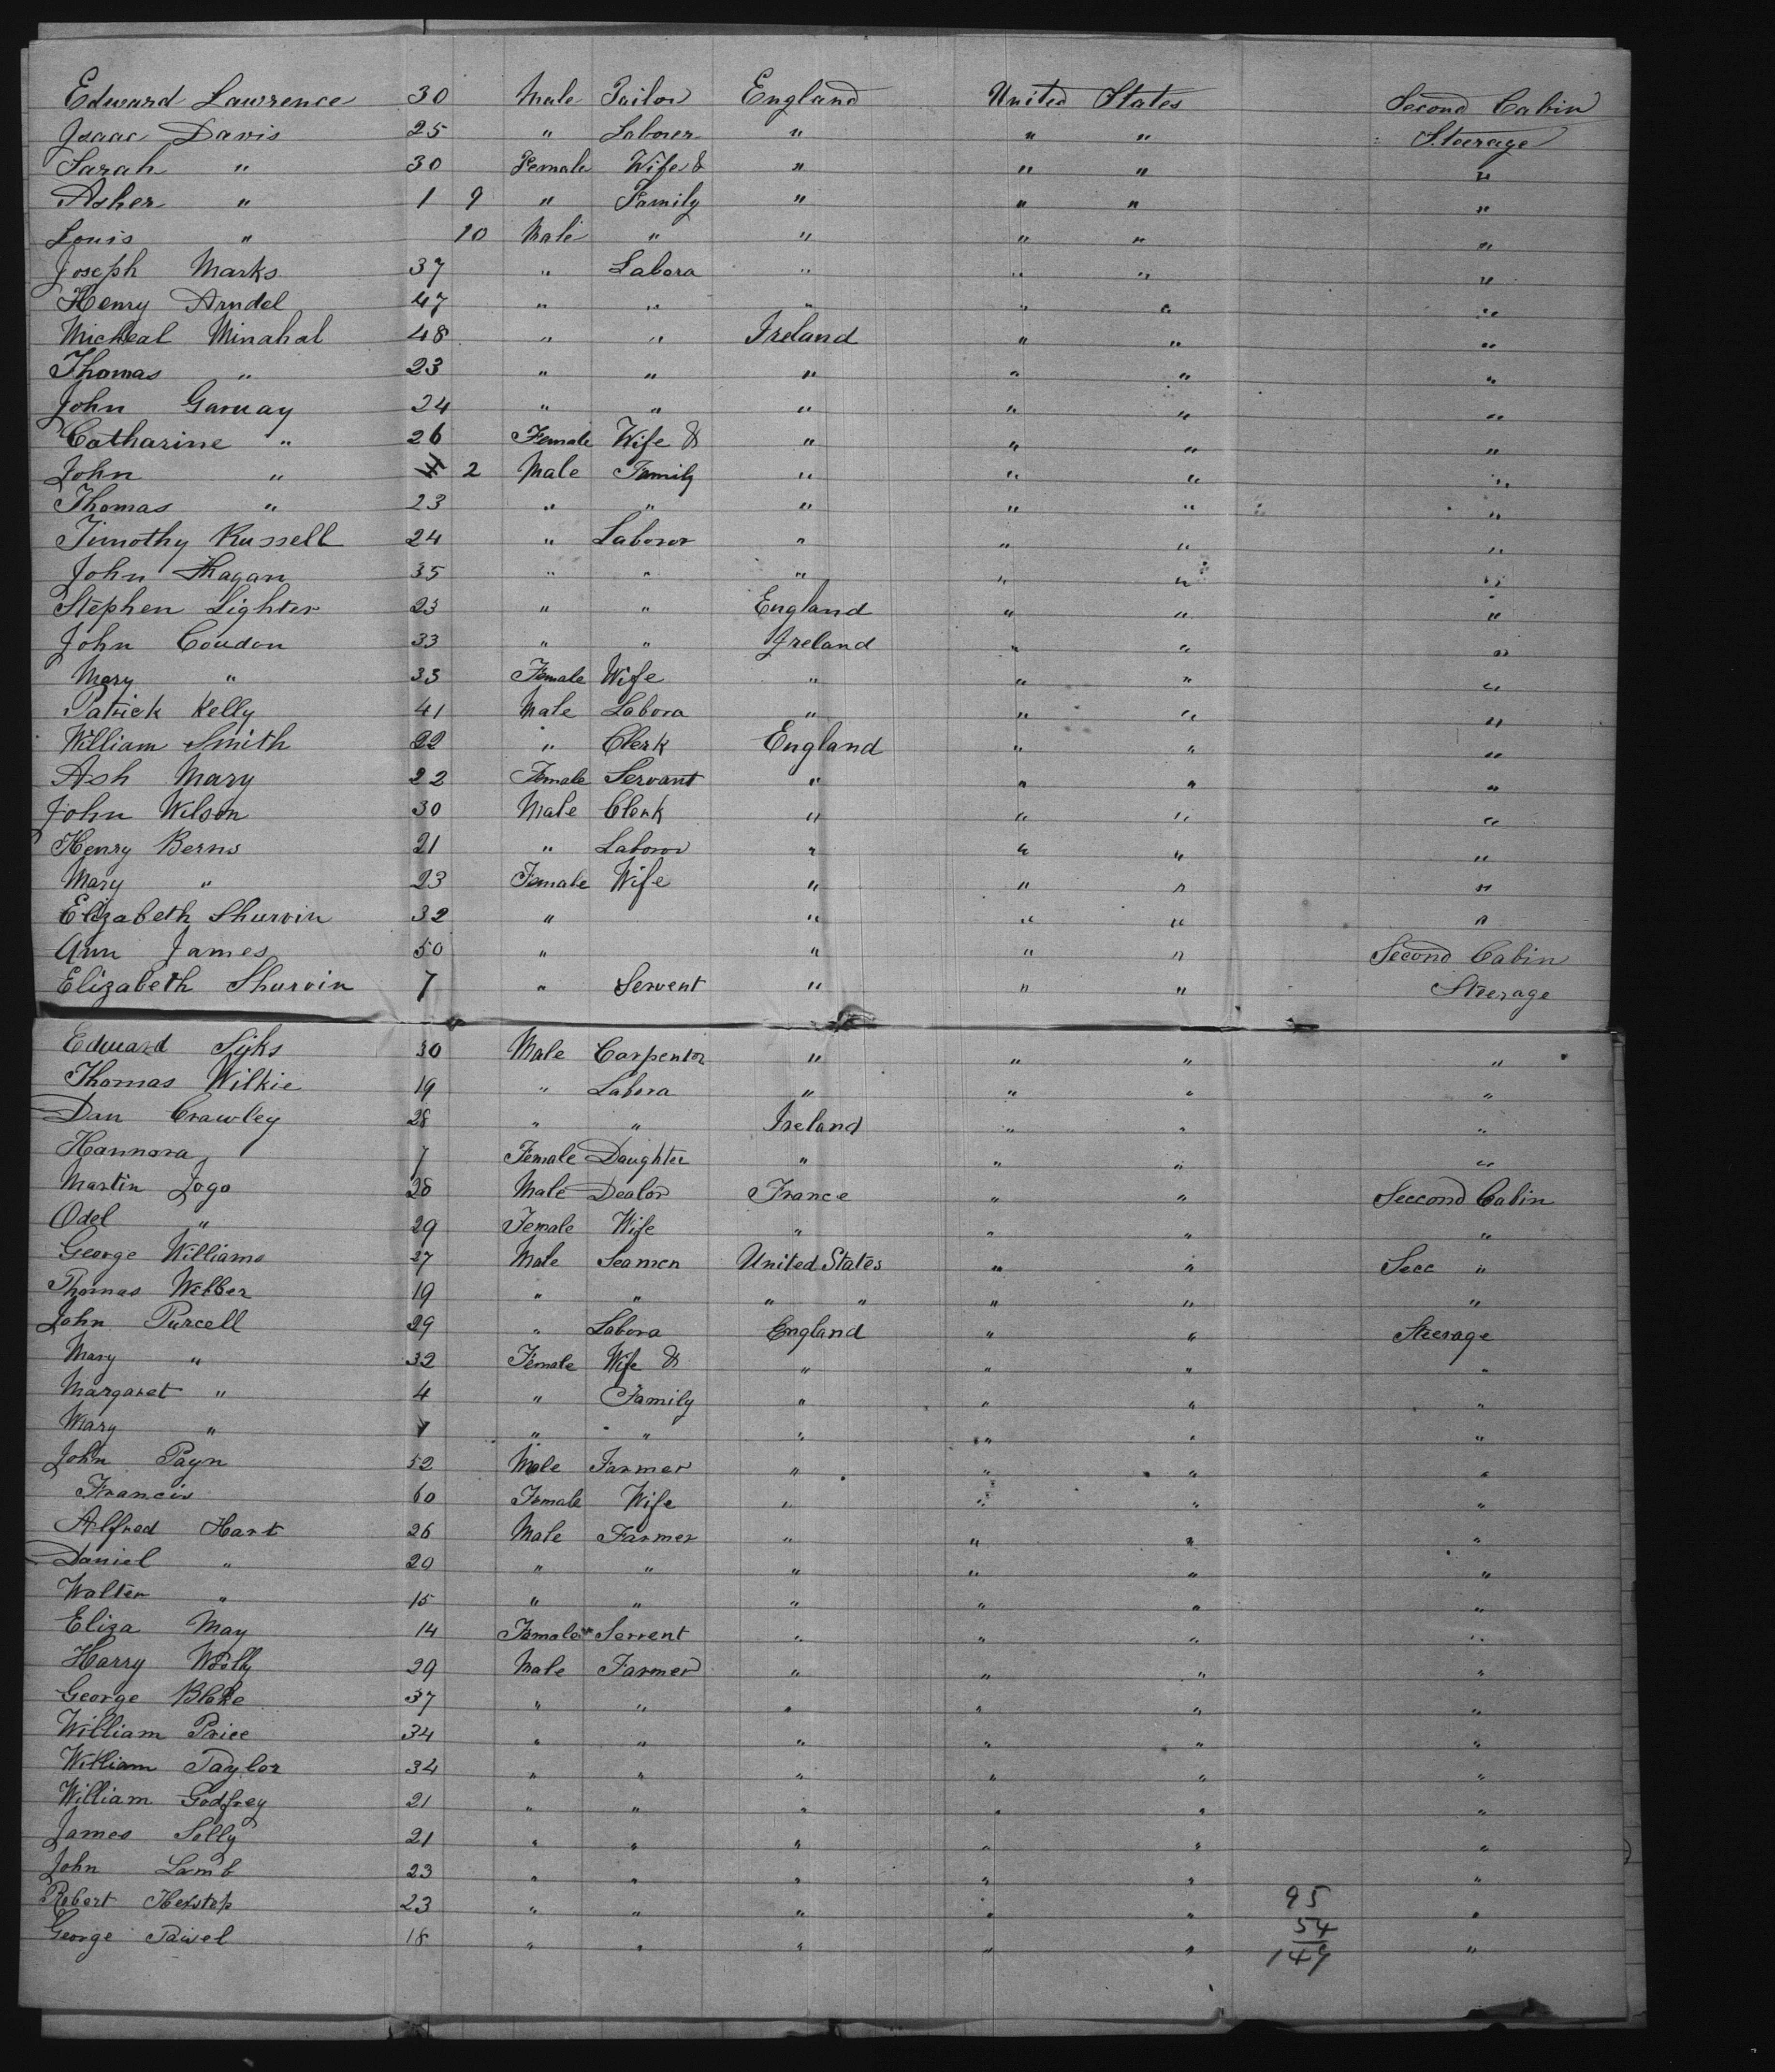 Edward Lawrence 30 Male Tailor England United States Second Cabin
Isaac Davis 25 " Laborer " " " Steerage
Sarah " 30 Female Wife & " " " "
Asher " 1 9 " Family " " " "
Louis " 10 Male " " " " "
Joseph Marks 37 " Labora " " " "
Henry Arndel 47 " " " " " "
Micheal Minahal 48 " " Ireland " " "
Thomas " 23 " " " " " "
John Garuay 24 " " " " " "
Catharine " 26 Female Wife & " " " "
John " 2 Male Family " " " "
Thomas " 23 " " " " " "
Timothy Russell 24 " Laboror " " " "
John Hagan 35 " " " " " "
Stephen Lighter 23 " " England " " "
John Coudon 33 " " Ireland " " "
Mary " 35 Female Wife " " " "
Patrick Kelly 41 Male Labora " " " "
William Smith 22 " Clerk England " " "
Ash Mary 22 Female Servant " " " "
John Wilson 30 Male Clerk " " " "
Henry Berns 21 " Laboror " " " "
Mary " 23 Female Wife " " " "
Elizabeth Shurvin 32 " " " " "
Ann James 50 " " " " Second Cabin
Elizabeth Shurvin 7 " Servent " " " Steerage
Edward Syks 30 Male Carpentor " " " "
Thomas Wilkie 19 " Labora " " " "
Dan Crawley 28 " " Ireland " " "
Hannora 7 Female Daughter " " " "
Martin Jogo 28 Male Dealor France " " Seccond Cabin
Odel " 29 Female Wife " " " "
George Williams 27 Male Seamen United States " " Secc "
Thomas Webber 19 " " " " " " "
John Purcell 29 " Labora England " " Steerage
Mary " 32 Female Wife & " " " "
Margaret " 4 " Family " " " "
Mary " " " " " " "
John Payn 52 Male Farmer " " " "
Francis 60 Female Wife " " " "
Alfred Hart 26 Male Farmer " " " "
Daniel " 20 " " " " " "
Walter " 15 " " " " " "
Eliza May 14 Female Servent " " " "
Harry 29 Male Farmer " " " "
George Blake 37 " " " " " "
William Price 34 " " " " " "
William Taylor 34 " " " " " "
William Godfrey 21 " " " " " "
James Selly 21 " " " " " "
John Lamb 23 " " " " " "
Robert 23 " " " " " 95 "
George 18 " " " " " 54 "
149